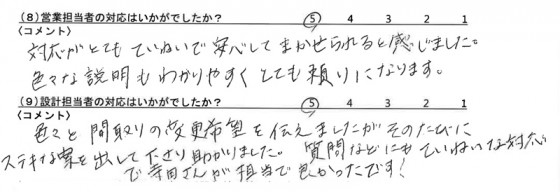 (8)営業担当者の対応はいかがでしたか? ⑤ 4 3 2 1
〈コメント〉
対応がとてもていねいで安心してまかせられると感じました。
色々な説明もわかりやすくとても頼りになります。
(9)設計担当者の対応はいかがでしたか? ⑤ 4 3 2 1
〈コメント〉
色々と間取りの変更希望を伝えましたがそのたびに
ステキな案を出して下さり助かりました。質問などにもていねいな対応
で寺田さんが担当で良かったです!